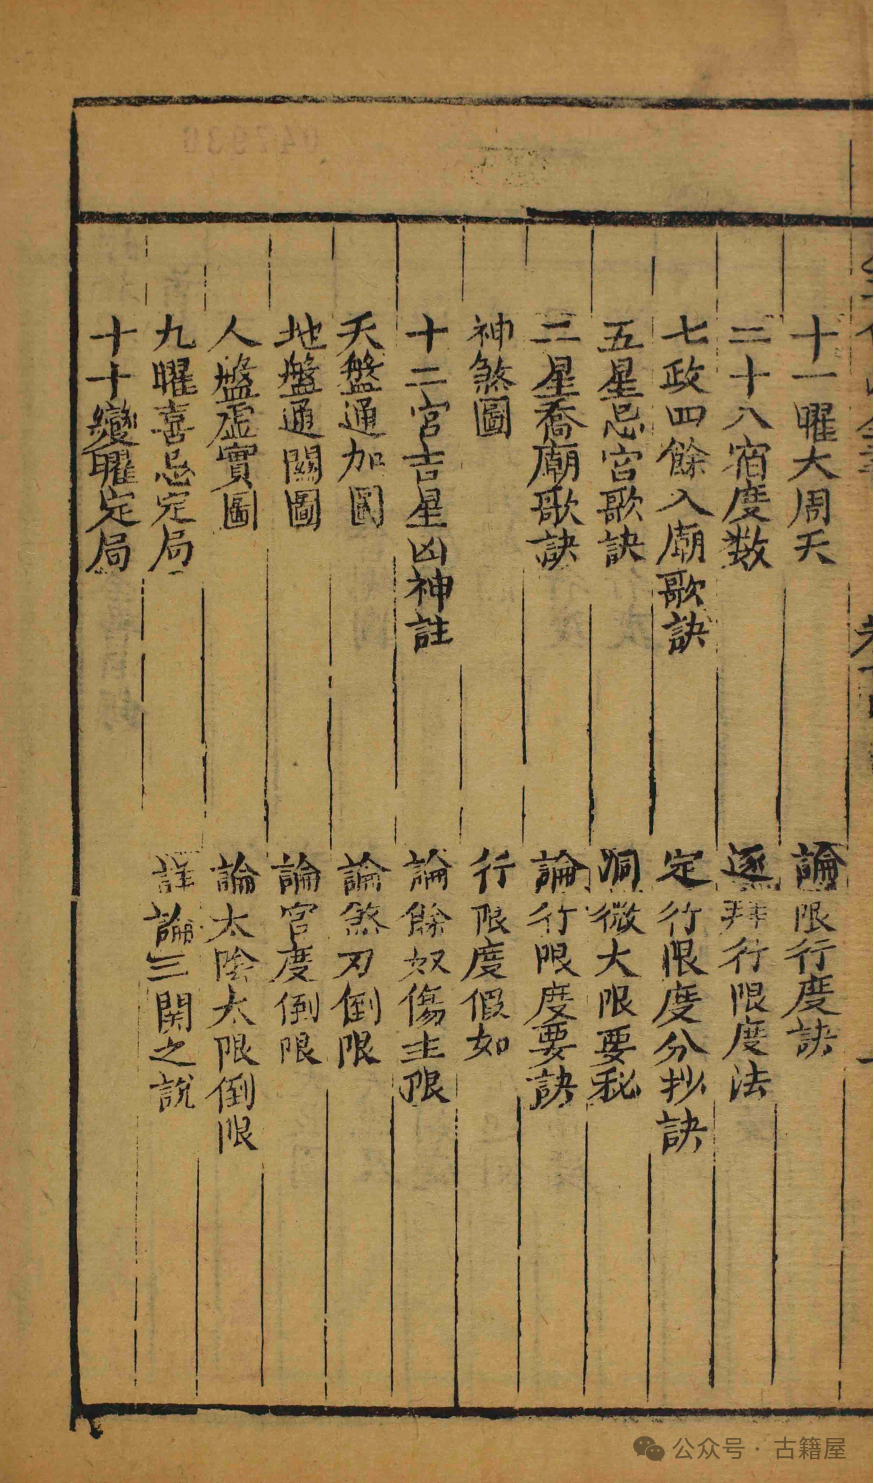 十一曜大周天
論限行度訣
二十八宿度数
逐拜行限度法
七政四餘入廟歌訣
定行限度分抄訣
五星忌宮歌訣
洞微大限要秘
二星喬廟歌訣
論行限度要訣
神煞圖
行限度假如
十二宮吉星凶神註
論餘奴傷主限
天盤通加圖
論煞刃倒限
地盤通關圖
論宮度倒限
人盤虛實圖
論太陰太限倒限
九曜喜忌定局
詳論三関之說
十十變曜定局
公众号·古籍屋